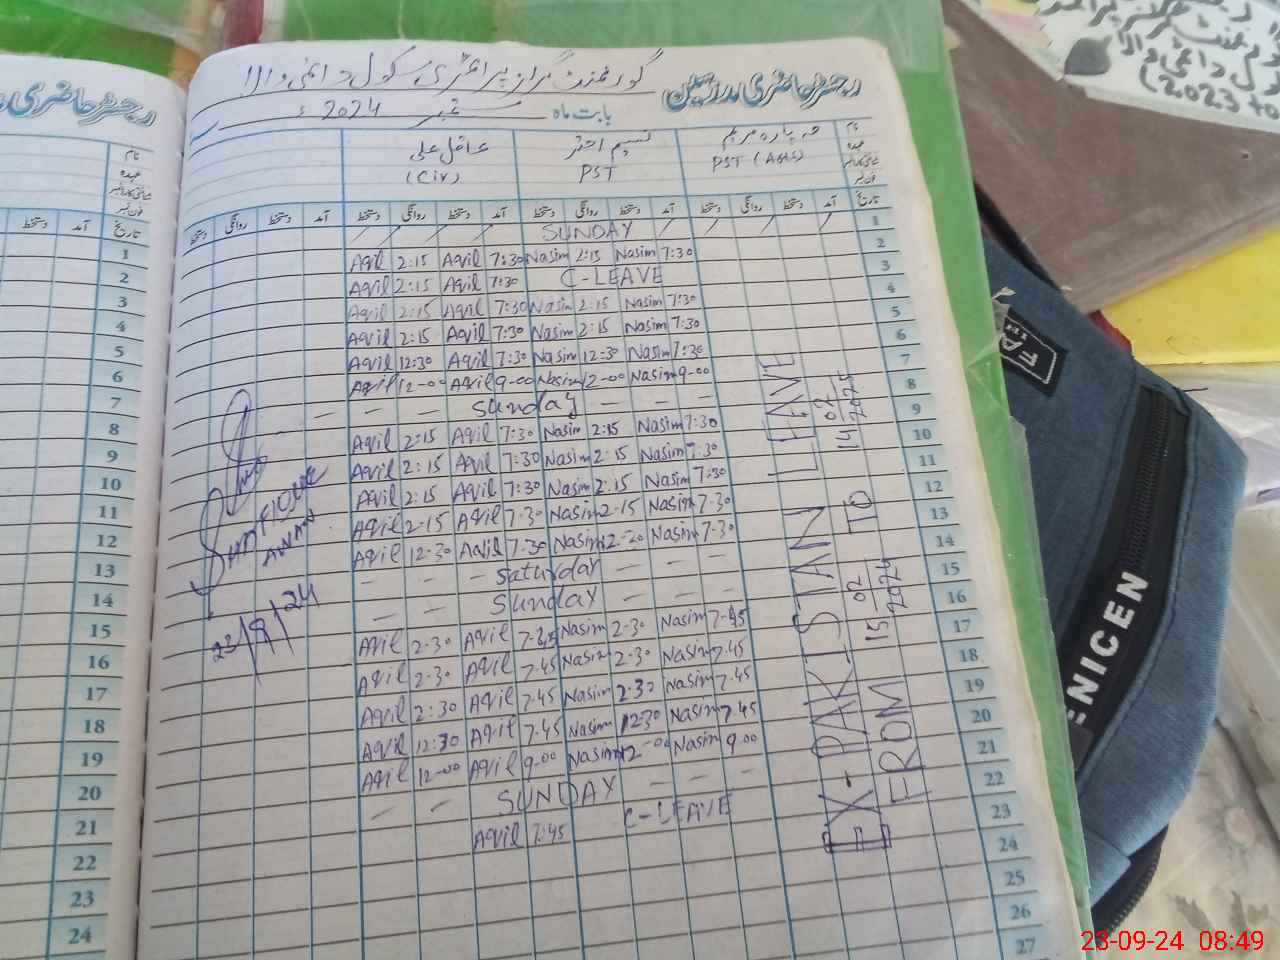 رجسٹر حاضری مدرسین گورنمنٹ گرلز پرائمری سکول دائمی والا
بابت ماہ ستمبر 2024ء
نام مہ پارہ مریم نسیم اختر عاقل علی
عہدہ PST PST (CIV)
تاریخ آمد دستخط روانگی دستخط آمد دستخط روانگی دستخط آمد دستخط روانگی دستخط آمد دستخط روانگی دستخط
1 SUNDAY
2 7:30 Nasim 2:15 Nasim 7:30 Aqil 2:15 Aqil
3 C-LEAVE 7:30 Aqil 2:15 Aqil
4 7:30 Nasim 2:15 Nasim 7:30 Aqil 2:15 Aqil
5 7:30 Nasim 2:15 Nasim 7:30 Aqil 2:15 Aqil
6 7:30 Nasim 12:30 Nasim 7:30 Aqil 12:30 Aqil
7 9-00 Nasim 12-00 Nasim 9-00 Aqil 12-00 Aqil
8 — — Sunday — — —
9 7:30 Nasim 2:15 Nasim 7:30 Aqil 2:15 Aqil
10 7:30 Nasim 2:15 Nasim 7:30 Aqil 2:15 Aqil
11 7:30 Nasim 2:15 Nasim 7:30 Aqil 2:15 Aqil
12 7-30 Nasim 2-15 Nasim 7-30 Aqil 2:15 Aqil
13 7-30 Nasim Nasim 7-30 Aqil 12:30 Aqil
14 — — Saturday — — —
15 — — Sunday — —
16 7-45 Nasim 2-30 Nasim 7-45 Aqil 2-30 Aqil
17 7.45 Nasim 2.30 Nasim 7.45 Aqil 2.30 Aqil
18 7.45 Nasim 2.30 Nasim 7.45 Aqil 2:30 Aqil
19
20 7.45 Nasim 12:30 Nasim 7.45 Aqil 12:30 Aqil
21 9.00 Nasim 12-00 Nasim 9-00 Aqil 12-00 Aqil
22 — — SUNDAY — —
23 C-LEAVE 7:45 Aqil
24
25
26
27
EX-PAKISTAN LEAVE
FROM 15 02 2024 TO 14 02 2025
AWAN
23/9/24
رجسٹر حاضری
نام
عہدہ
تاریخ آمد دستخط
1
2
3
4
5
6
7
8
9
10
11
12
13
14
15
16
17
18
19
20
21
22
23
24
دائمی والا
(2023 to
ENICEN
23-09-24 08:49